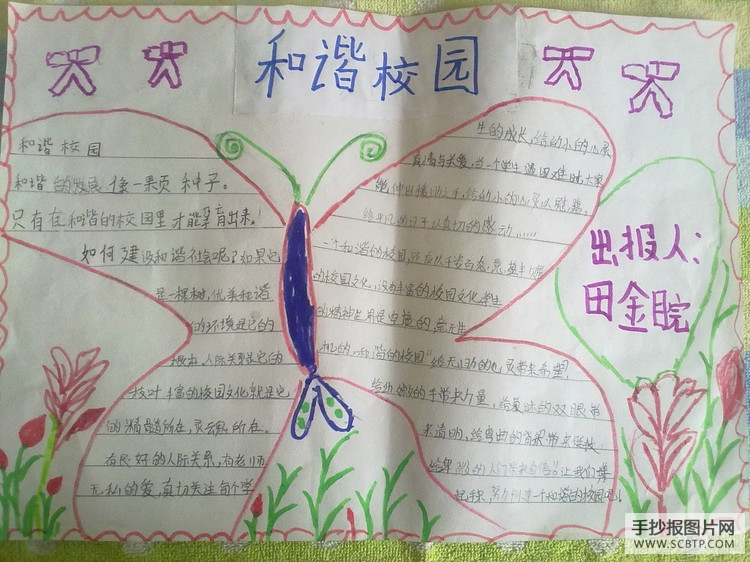 和谐校园
和谐校园
和谐的发展像一果页种子。
只有在和谐的校园里才能孕育出来!
如何建设和谐社会呢?如果它
是一棵树,优美和谐
的环境是它的
人际关系是它的
枝叶丰富的校园文化就是它
的精髓所在,灵魂所在。
有良好的人际关系,有老师
无私的爱,真切关注每个学
生的成长,给幼小的心灵
真情与关爱,当一个学生遇困难时,大家
伸出援助之手,给幼小的心灵以慰藉。
给平凡的日子以真切的感动……
一个和谐的校园,还应
的校园文化,没有丰富的校园文化,学生
的精神世界是空虚的,
机的。和谐的校园"给无助的心灵带来希望,
给幼嫩的手带来力量,给的双眼带
来清明,给弯曲的脊梁带来
给的人们让我们
起来,努力创建一个和谐的校园吧!
出报人:
田金皖
手抄报图片网
WWW.SCBTP.COM